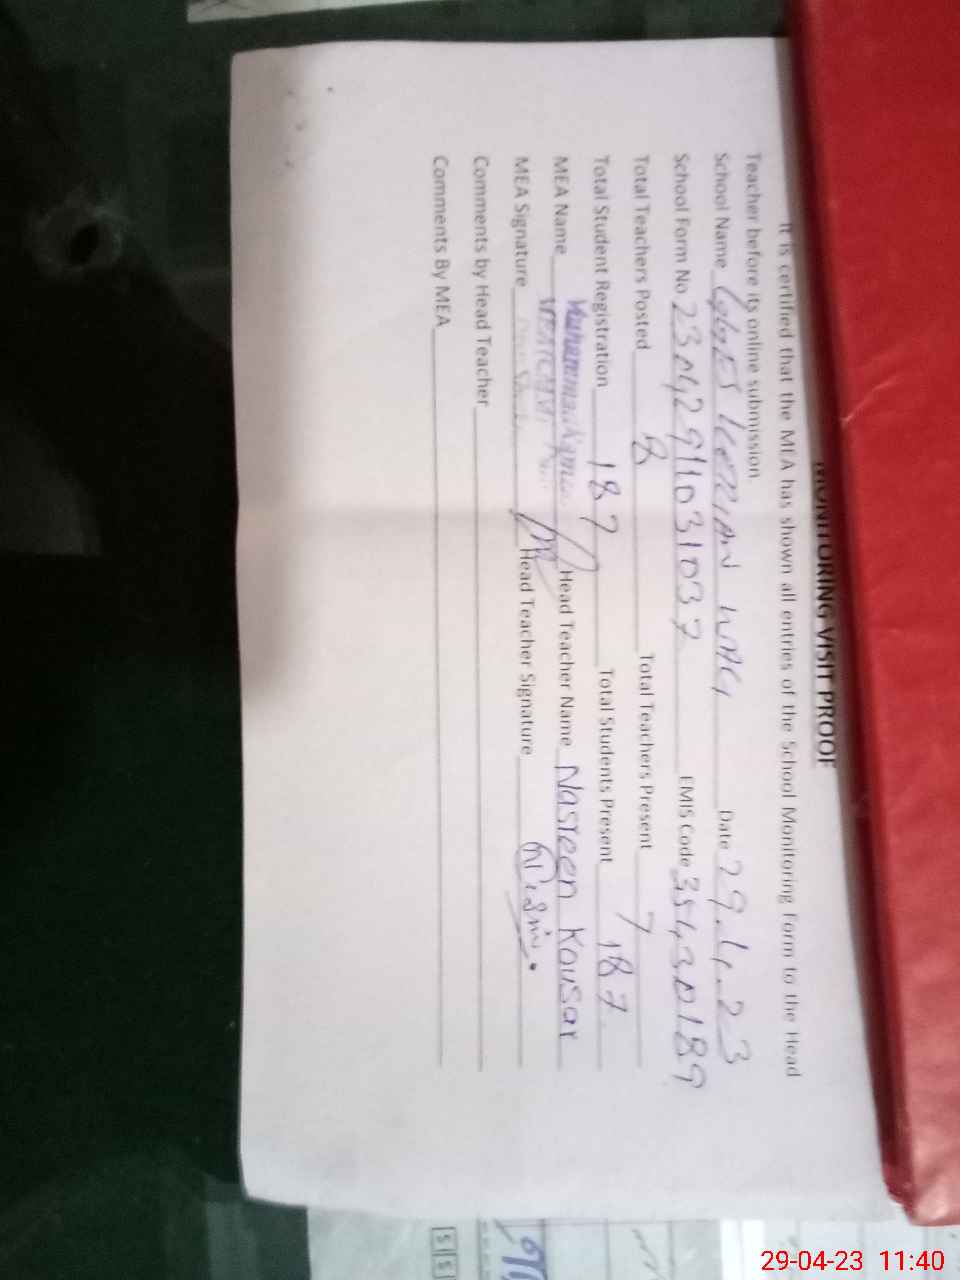 MONITORING VISIT PROOF
It is certified that the MEA has shown all entries of the School Monitoring Form to the Head
Teacher before its online submission.
School Name Date 29.4.23
School Form No 23M42911031037 EMIS Code 35430189
Total Teachers Posted 8 Total Teachers Present 7
Total Student Registration 187 Total Students Present 187
MEA Name Head Teacher Name Nasreen Kousar
MEA Signature Head Teacher Signature
Comments by Head Teacher
Comments By MEA
29-04-23 11:40